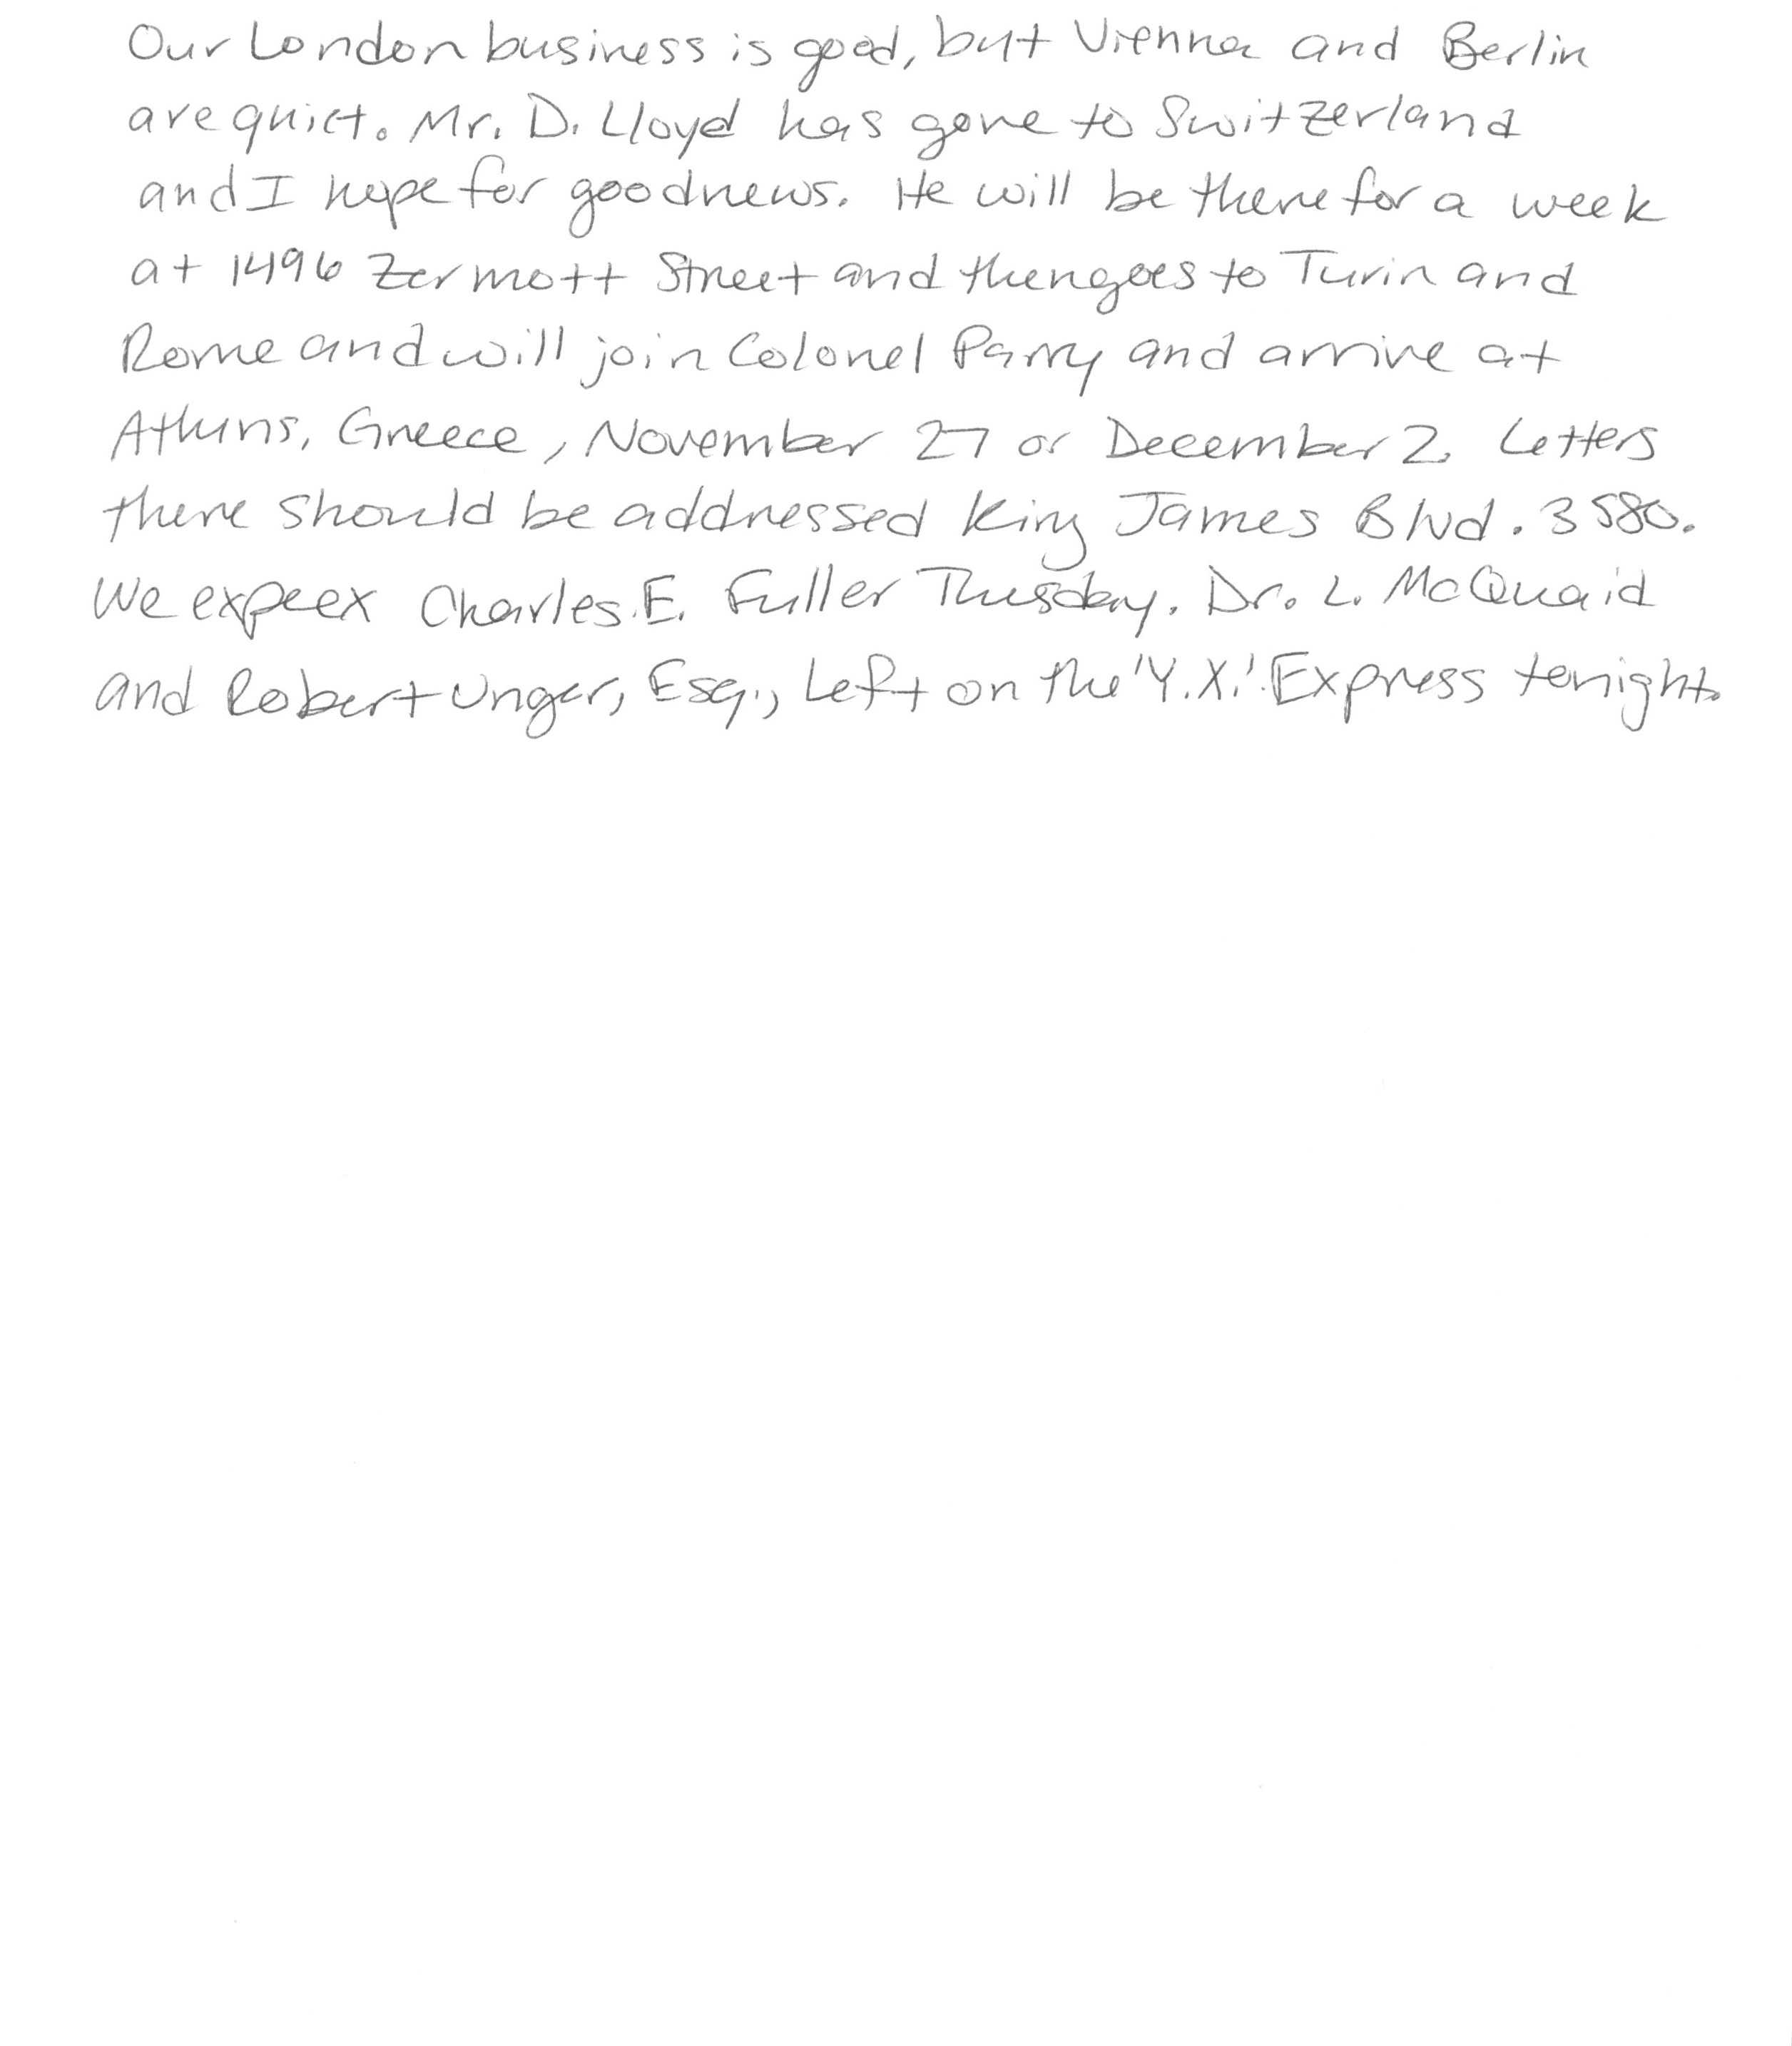 Our London business is good, but Vienna and Berlin
are quiet. Mr. D. Lloyd has gone to Switzerland
and I hope for good news. He will be there for a week
at 1496 Zermott Street and then goes to Turin and
Rome and will join Colonel Parry and arrive at
Athens, Greece, November 27 or December 2. Letters
there should be addressed King James Blvd. 3580.
We expeex Charles E. Fuller Tuesday. Dr. L. McQuaid
and Robert Unger, Esq., Left on the 'Y.X.' Express tonight.